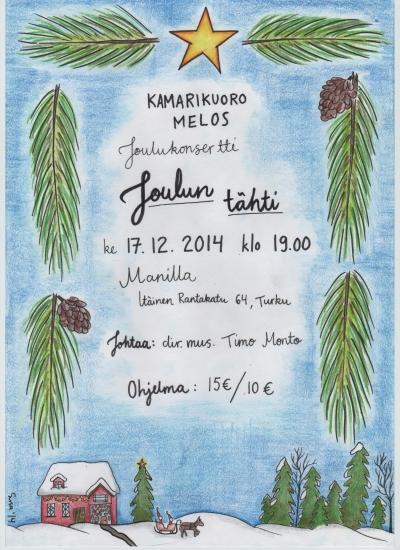 KAMARIKUORO
MELOS
Joulukonsertti
Joulun tähti
ke 17.12.2014 klo 19.00
Manilla
Itäinen Rantakatu 64, Turku
Johtaa: dir. mus. Timo Monto
Ohjelma: 15€/10€